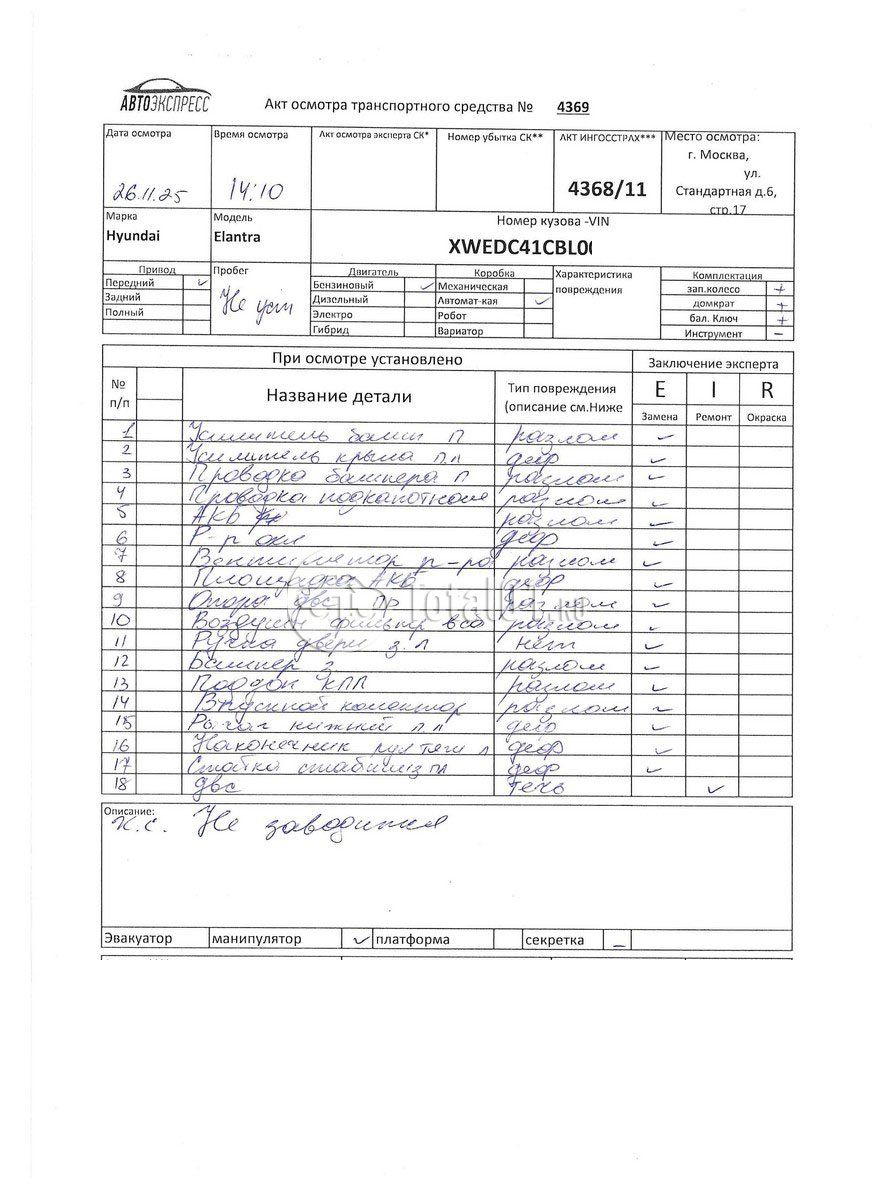 АВТОЭКСПРЕСС
Акт осмотра транспортного средства № 4369
Дата осмотра
26.11.25
Время осмотра
14:10
Акт осмотра эксперта СК*
Номер убытка СК**
АКТ ИНГОССТРАХ***
4368/11
Место осмотра:
г. Москва,
ул.
Стандартная д.6,
стр.17
Марка
Hyundai
Модель
Elantra
Номер кузова -VIN
XWEDC41CBL0
Привод
Передний ✓
Задний
Полный
Пробег
Не уст
Двигатель
Бензиновый ✓
Дизельный
Электро
Гибрид
Коробка
Механическая
Автомат-кая ✓
Робот
Вариатор
Характеристика
повреждения
Комплектация
зап.колесо +
домкрат +
бал. Ключ +
Инструмент –
При осмотре установлено
Заключение эксперта
№
п/п
Название детали
Тип повреждения
(описание см.Ниже
E I R
Замена Ремонт Окраска
1 Усилитель бамп П разлом ✓
2 Усилитель крыла п.л деф ✓
3 Проводка бампера П разлом ✓
4 Проводка подкапотная разлом ✓
5 АКБ разлом ✓
6 Р-р охл деф ✓
7 Вентилятор р-ра разлом ✓
8 Площадка АКБ деф ✓
9 Опора двс пр разлом ✓
10 Воздушн фильтр разлом ✓
11 Ручка двери з.л нет ✓
12 Бампер з разлом ✓
13 Поддон КПП разлом ✓
14 Впускной колектор разлом ✓
15 Рычаг нижний п.л деф ✓
16 Наконечник рул тяги л деф ✓
17 Стойка стабилиз пл деф ✓
18 двс течь ✓
Total01.RU
Описание:
к.с. Не заводится
Эвакуатор манипулятор ✓ платформа секретка –